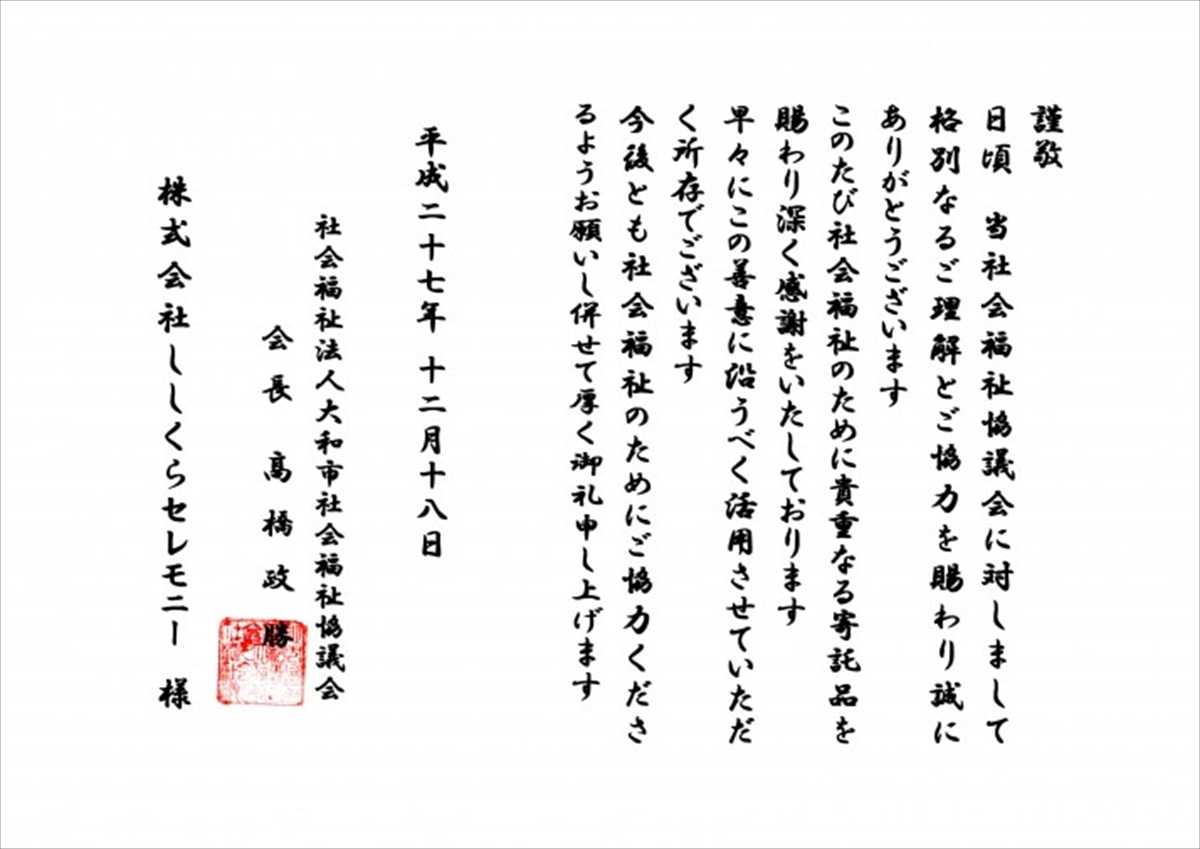 謹敬
日頃　当社会福祉協議会に対しまして
格別なるご理解とご協力を賜わり誠に
ありがとうございます
このたび社会福祉のために貴重なる寄託品を
賜わり深く感謝をいたしております
早々にこの善意に沿うべく活用させていただ
く所存でございます
今後とも社会福祉のためにご協力くださ
るようお願いし併せて厚く御礼申し上げます
平成二十七年　十二月十八日
社会福祉法人大和市社会福祉協議会
会長　高橋政勝
株式会社ししくらセレモニー　様